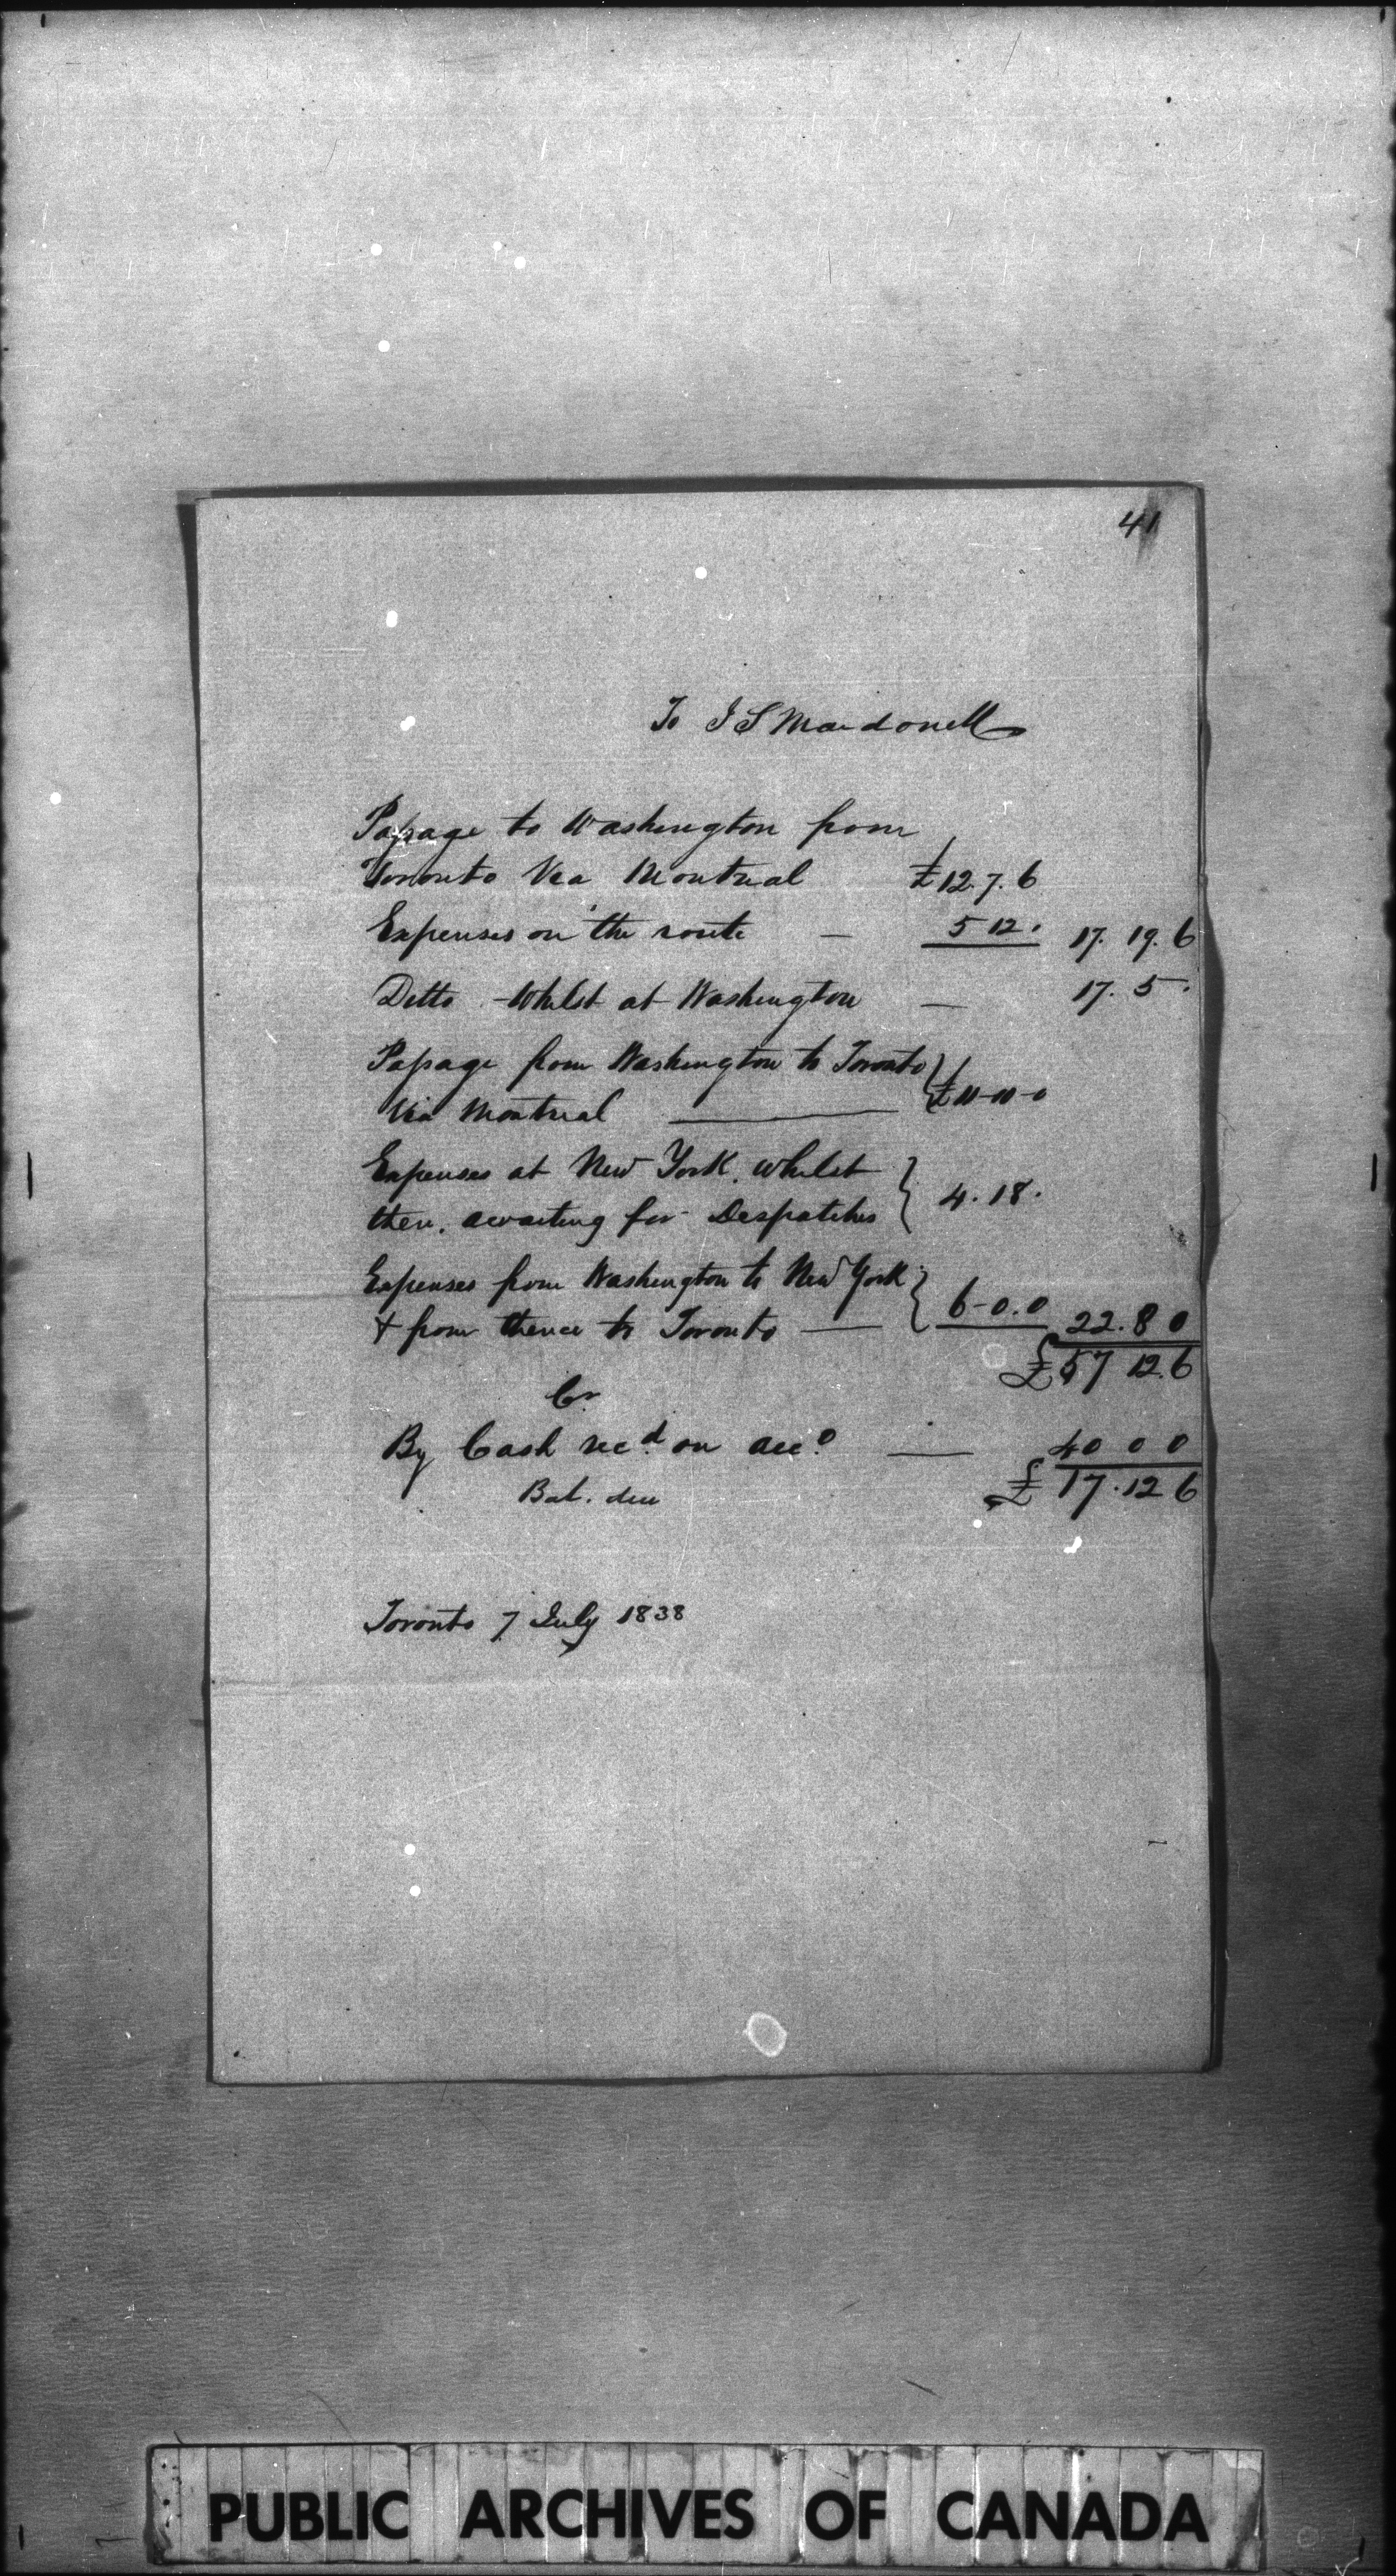 41
To J S Macdonell
Passage to Washington from
Toronto Via Montreal £12.7.6
Expenses on the route — 5 12. 17. 19. 6
Ditto - Whilst at Washington — 17. 5.
Passage from Washington to Toronto
Via Montreal £11-10-0
Expenses at New York. whilst
there. awaiting for Despatches 4. 18.
Expenses from Washington to New York
& from thence to Toronto — 6-0.0 22.8 0
£57 12.6
Cr
By Cash recd. on acco. — 40 0 0
Bal. due £17.12 6
Toronto 7 July 1838
PUBLIC ARCHIVES OF CANADA